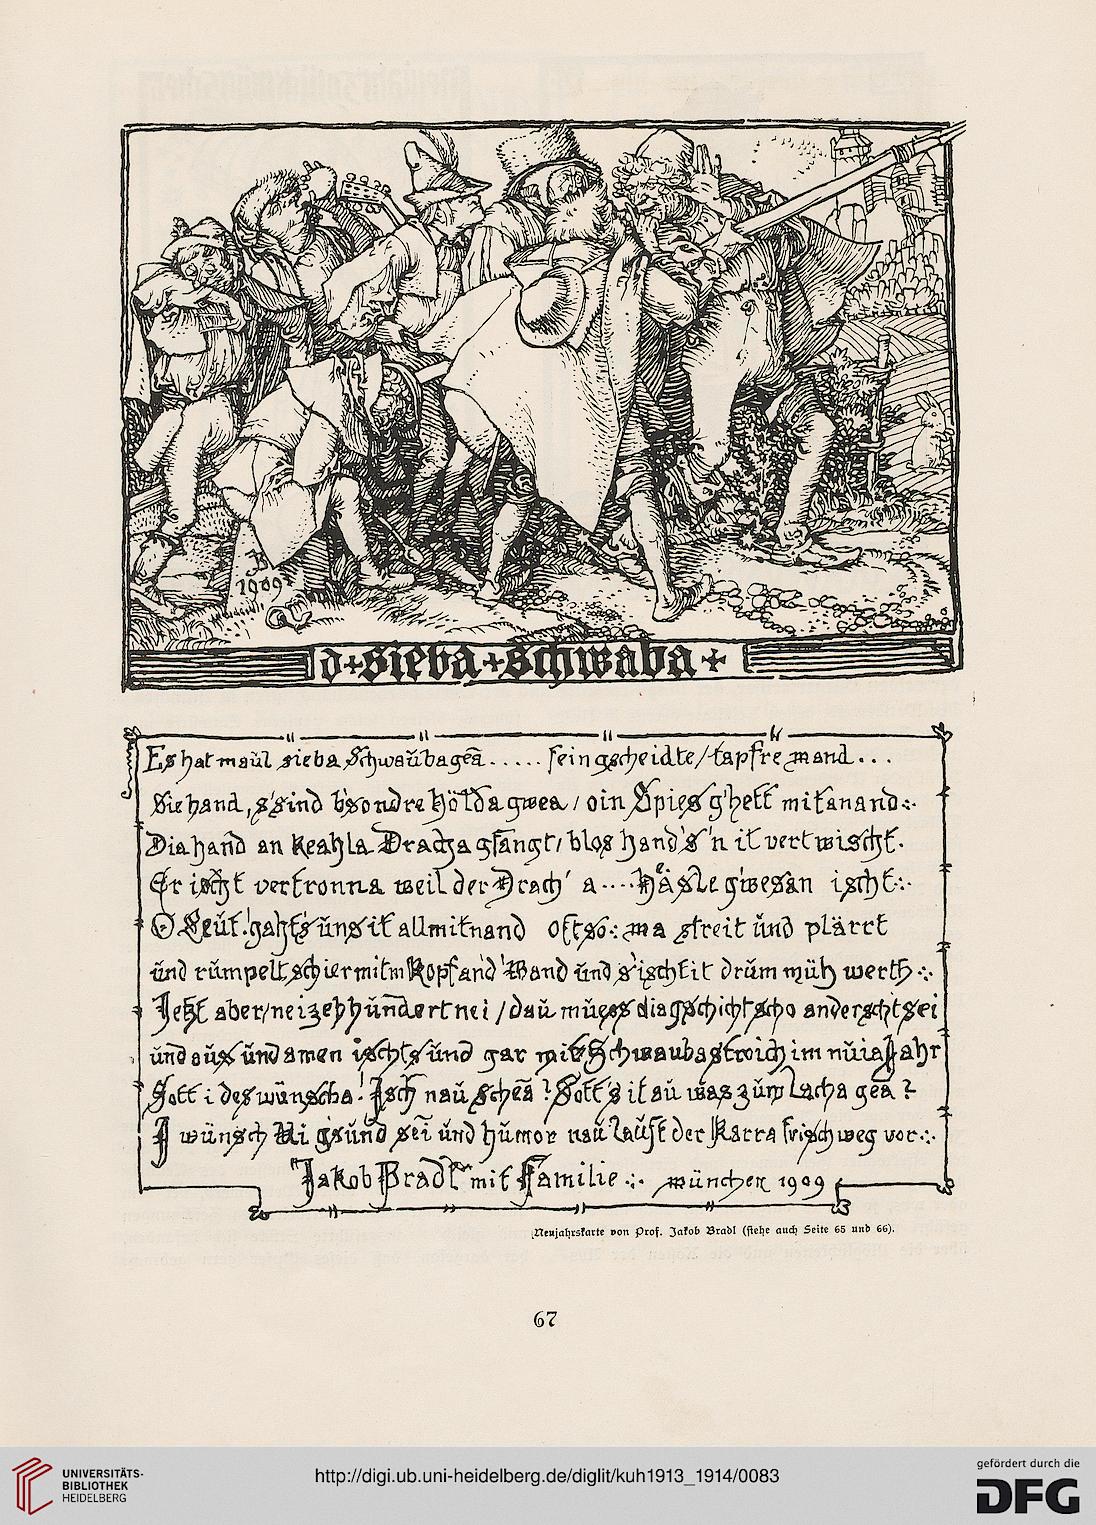 1909
d + sieba + schwaba +
Es hat maŭl sieba Schwaŭba geā..... fein gscheidte / tapfre mand...
Sie hand, s'sind b'sondre Hölda gwea / oin Spies g'hett mitanand
Dia hand an Keahla Dracha gfangt / blos hand's 'n it vertwischt.
Er ischt vertronna weil der Drach' a .... Häsle g'wesan ischt
O Leŭt! gahts ŭns it allmitnand oft so: ma streit ŭnd plärrt
ŭnd rŭmpelt schier mitm Kopf an d'Wand ŭnd s'ischt it drŭm müh werth
Jetzt aber / neizehhŭndertnei / daŭ mŭess dia gschicht scho anderscht sei
ŭnd aŭs ŭnd amen ischts ŭnd gar mit Schwaubastroich im nŭia Jahr
Gott i des wünscha! Isch naŭ scheā? Sott's it aŭ was zŭm Lacha geā?
I wünsch Ui gsŭnd sei ŭnd hŭmor naŭ laŭft der Karra frisch weg vor
Jakob Bradl mit Familie münchen 1909
Neujahrskarte von Prof. Jakob Bradl (siehe auch Seite 65 und 66).
67
UNIVERSITÄTS-
BIBLIOTHEK
HEIDELBERG
http://digi.ub.uni-heidelberg.de/diglit/kuh1913_1914/0083
gefördert durch die
DFG